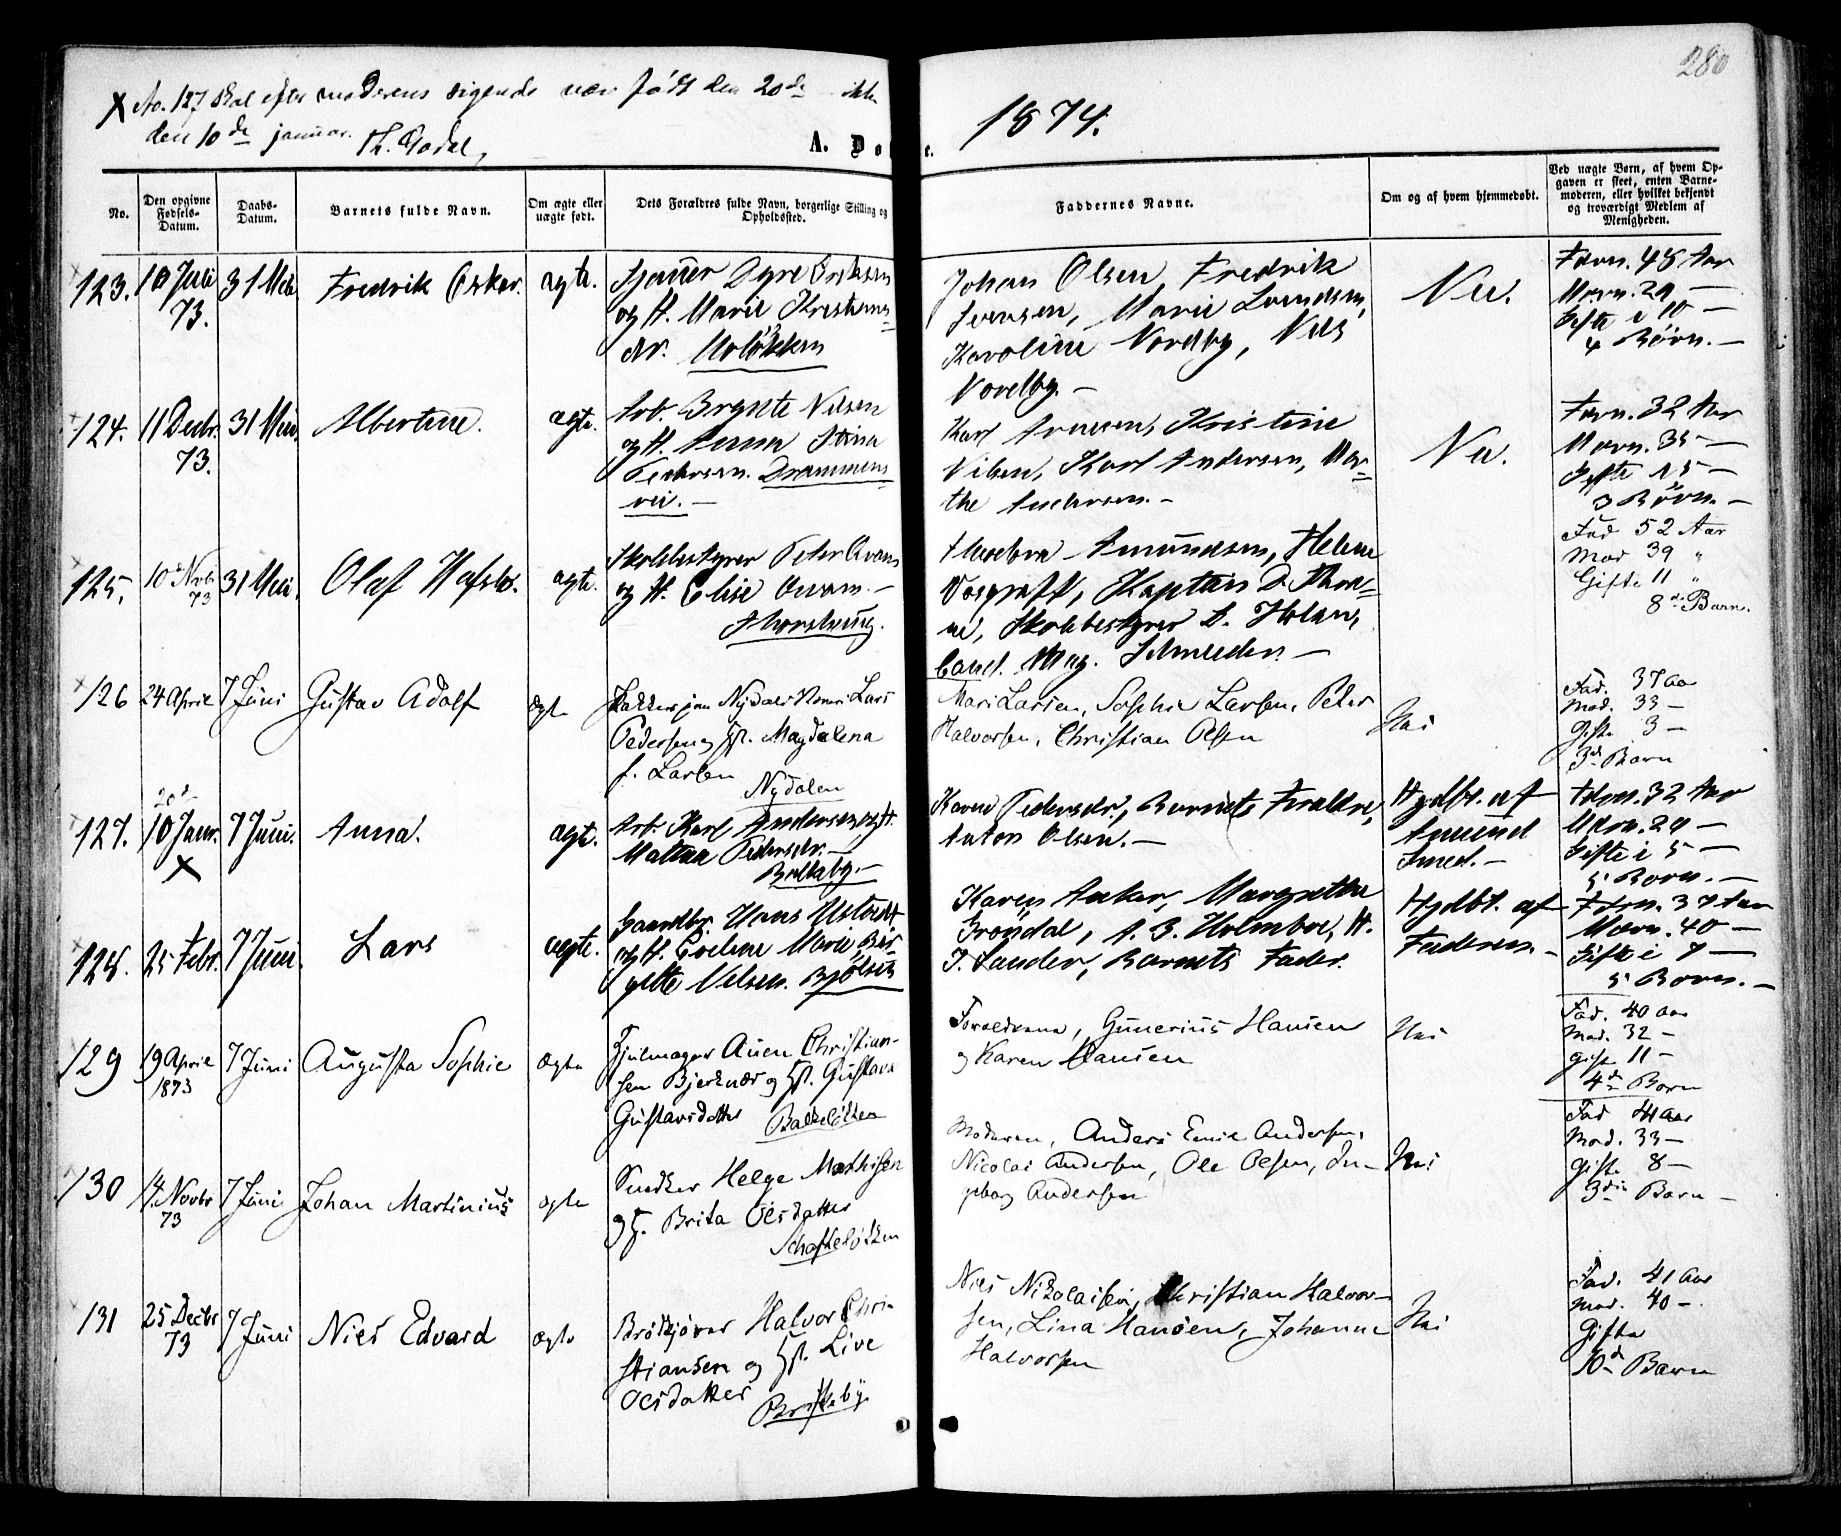 280
No. 127 skal efter moderens sigende vær född den 20de ikke
den 10de januar.
1874.
A. Dø t.
No.
Den opgivne Fødsels-Datum.
Daabs-Datum.
Barnets fulde Navn.
Om ægte eller uægte født.
Dets Forældres fulde Navn, borgerlige Stilling og Opholdssted.
Faddernes Navne.
Om og af hvem hjemmedøbt.
Ved uægte Børn, af hvem Opgaven er skeet, enten Barnemoderen, eller hvilket bekjendt og troværdigt Medlem af Menigheden.
123. 10 Juli 31 Mai Fredrik Oskar. ægte.
73.
og H. Marie Kristians-
dr.
Johan Olsen, Fredrik
Svensen, Marie Svendsen,
Karoline Nordby, Nils
Nordby. —
Nei.
Færn. 48 Aar
Morn. 29 —
Gifte i 10 —
4 Børn. —
124. 11 Decbr. 31 Mai. Albertine. ægte.
73.
Arb. Brynte Nilsen
og H. Anna Stina
Pedersen. Drammens
vei. —
Karl Arnesen, Kristine
Nilsen, Karl Andersen, Mar-
the Andersen. —
Nei.
Færn. 32 Aar
Morn. 35 —
Gifte 15 —
3 Børn. —
125. 10 Novbr 31 Mai. Olaf ægte.
73
Skolebestyrer Peter Qvam
og H. Elise Qvam. —
Thorshaug.
Theodora Amundsen, Helene
Vosgraff, Kaptein D. Thra-
ne, Skolebestyrer D. Holm,
Cand. Mag. —
Fad 52 Aar
Mod 39 "
Gifte 11 "
8de Barn.
126 24 April 7 Juni Gustav Adolf ægte
Nydalen Lars
Pedersen og Hst. Magdalena
f. Larsen
Nydalen
Mari Larsen, Sophie Larsen, Peter
Halvorsen, Christian Olsen
Nei
Fad. 37 Aa
Mod. 33 —
Gifte 3 —
3de Barn
20de
127. 10 Janr. 7 Juni. Anna. ægte.
X
Arb. Karl Andersen og H.
Mathea Pedersdr. —
Karen Pedersdr., Barnets Forældre,
Anton Olsen. —
Hjdbt. af
Amund
Smed. —
Færn. 32 Aar
Morn. 29 —
Gifte i 5 —
5 Born. —
128. 25 Febr. 7 Juni. Lars ægte.
Gaardbr. Hans Ustvedt
og H. Eveline Marie Bir-
gitte Nilsen. Bjølsen
Karen Anker, Margrethe
Grøndal, A. B. Holmboe, H.
J. Sander, Barnets Fader.
Hjdbt. af
Faderen. —
Færn. 37 Aar
Morn. 40 —
Gifte i 7 —
5 Born. —
129 19 April 7 Juni Augusta Sophie ægte
1873
Hjulmager Auen Christian-
sen Bjerknæs og Hst. Gustava
Gustavsdatter Balkeløkken
Forældrene, Gunerius Hansen
og Karen Hansen
Nei
Fad. 40 Aar
Mod. 32 —
Gifte 11 —
4de Barn
130 14 Novbr 7 Juni Johan Martinius ægte
73
Snedker Helge Mathisen
og H. Brita Olsdatter
Schafteløkken
Moderen, Anders Emil Andersen,
Nicolai Andersen, Ole Olsen, In-
geborg Andersen
Nei
Fad 41 Aar
Mod. 33 —
Gifte 8 —
3die Barn —
131 25 Decbr 7 Juni Niels Edvard ægte
73
Brødkjører Halvor Chri-
stiansen og Hst. Live
Olsdatter
Briskeby
Niels Nikolaisen, Christian Halvor-
sen, Lina Hansen, Johanne
Halvorsen
Nei
Fad. 41 Aar
Mod. 40 —
Gifte
10de Barn